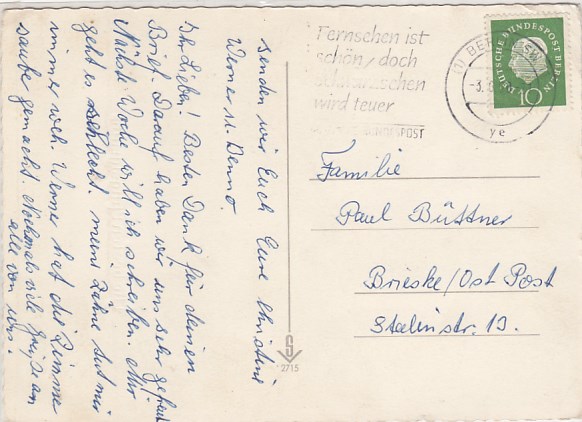 senden wir Euch Eure Christine
Werner u. Benno.
Ihr Lieben! Besten Dank für deinen
Brief. Darauf haben wir uns sehr gefreut
Nächste Woche will ich schreiben. Mir
geht es schlecht. meine Zähne tut mir
immer weh. Werner hat die Zimme
sauber gemacht. Nochmals viele Grüße an
alle von uns.
Fernsehen ist
schön, doch
schwarzsehen
wird teuer
BUNDESPOST
(1) BERLIN SW
-3.
ye
DEUTSCHE BUNDESPOST BERLIN
10
Familie
Paul Büttner
Brieske/Ost Post
Stalinstr. 13.
S
2715